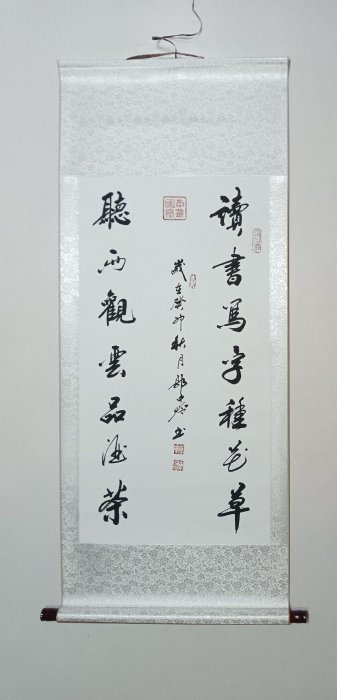 讀書寫字種花草
聽雨觀雲品酒茶
歲在癸卯秋月
書